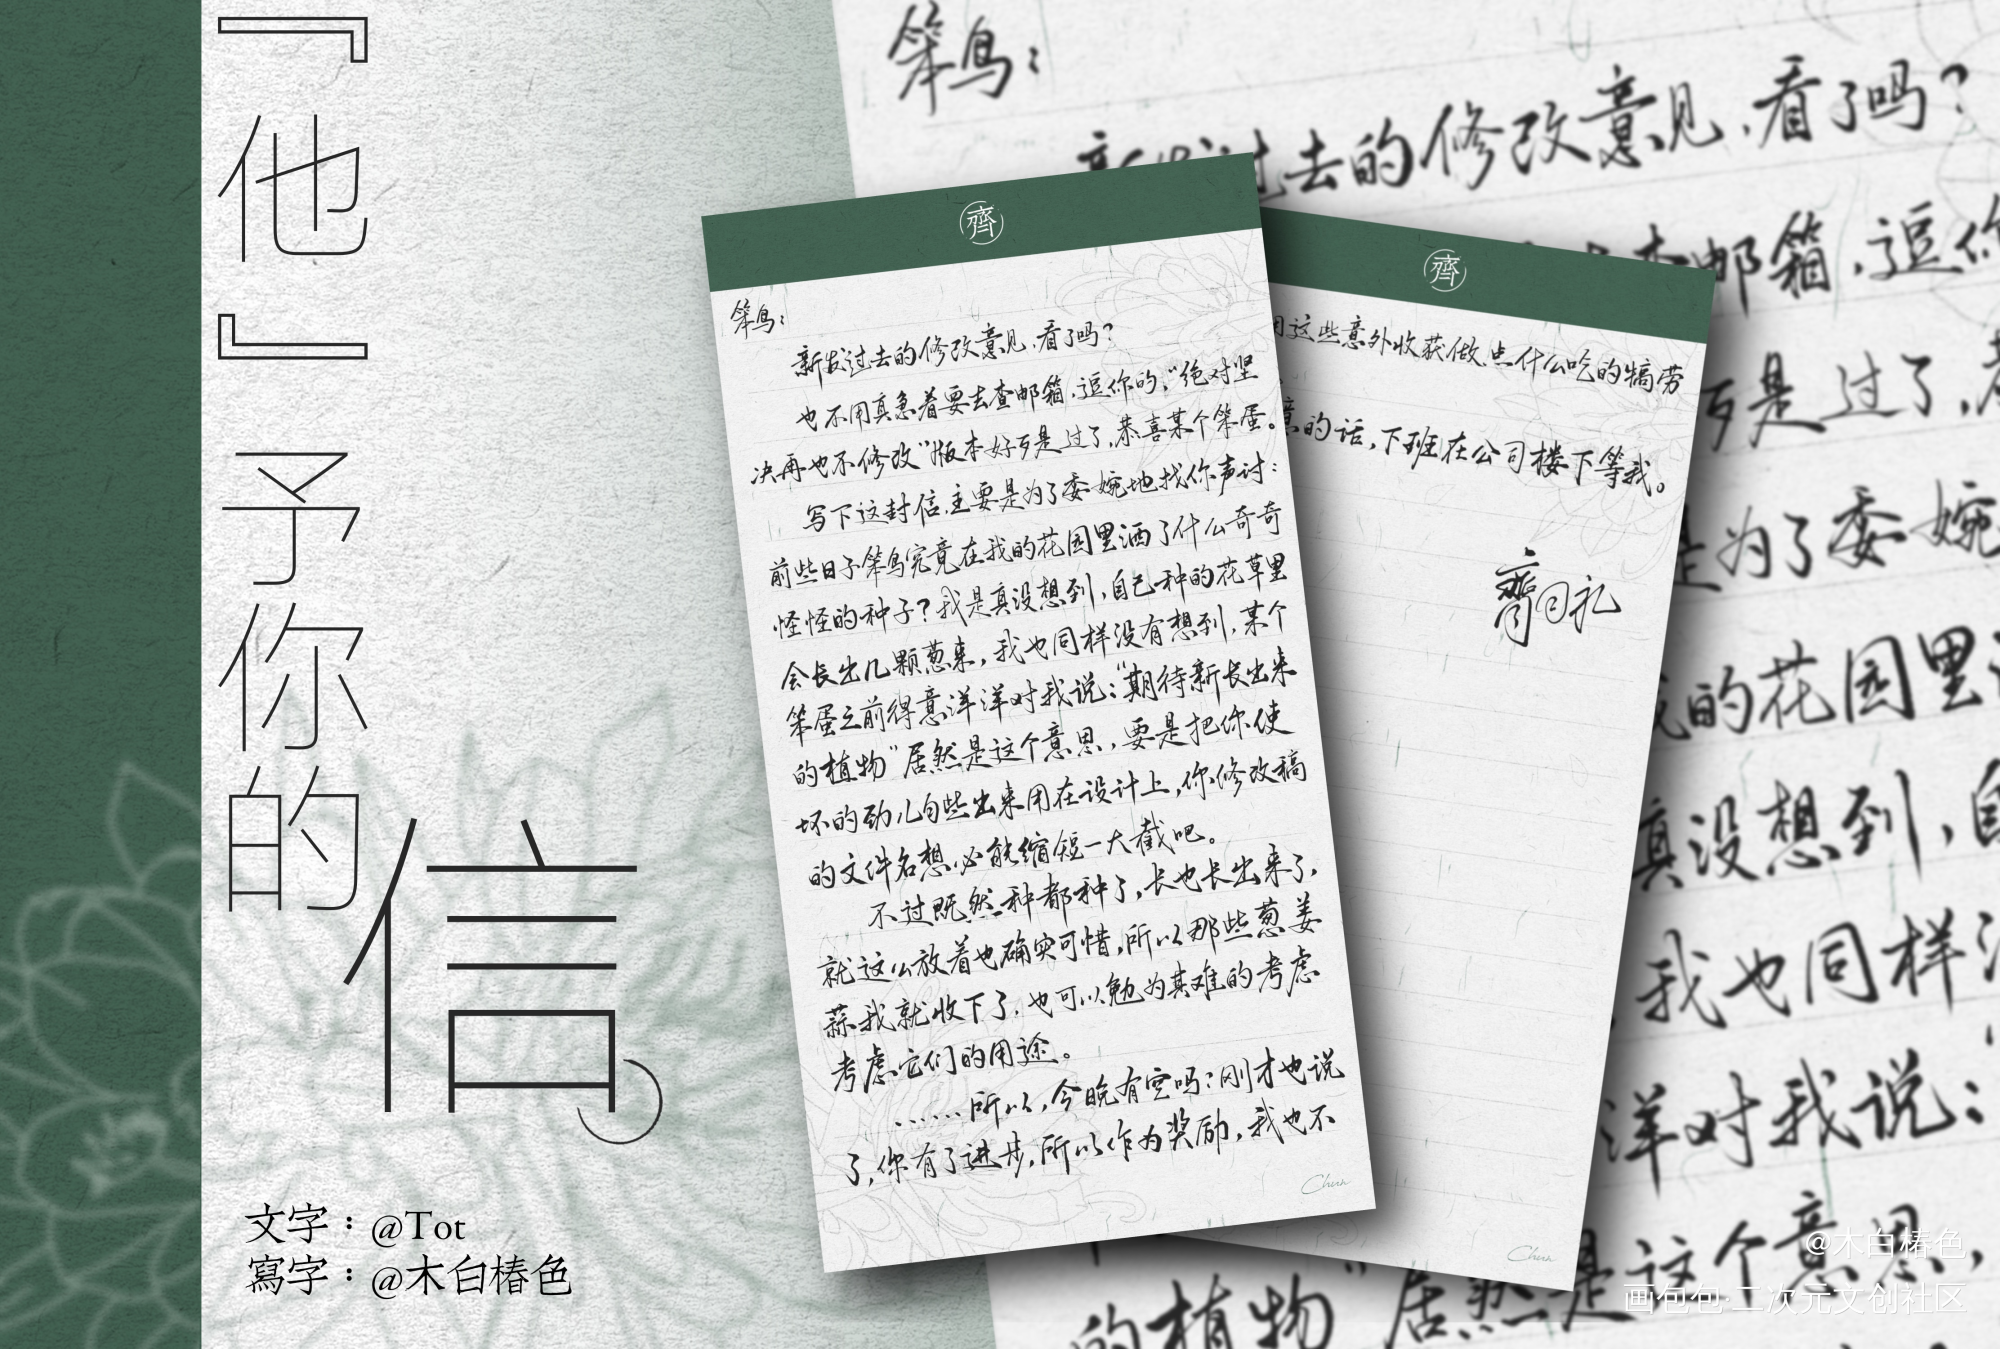 『他』予你的信
文字：@Tot
寫字：@木白椿色
齊
笨鸟：
新发过去的修改意见，看了吗？
也不用真急着要去查邮箱，逗你的，“绝对坚
决再也不修改”版本好歹是过了，恭喜某个笨蛋。
写下这封信，主要是为了委婉地找你声讨：
前些日子笨鸟究竟在我的花园里洒了什么奇奇
怪怪的种子？我是真没想到，自己种的花草里
会长出几颗葱来，我也同样没有想到，某个
笨蛋之前得意洋洋对我说：“期待新长出来
的植物”居然是这个意思，要是把你使
坏的劲儿匀些出来用在设计上，你修改稿
的文件名想必能缩短一大截吧。
不过既然种都种了，长也长出来了，
就这么放着也确实可惜，所以那些葱姜
蒜我就收下了，也可以勉为其难的考虑
考虑它们的用途。
……所以，今晚有空吗？刚才也说
了，你有了进步，所以作为奖励，我也不
Chun
齊
用这些意外收获做点什么吃的犒劳
意的话，下班在公司楼下等我。
齊司礼
Chun
笨鸟：
新发过去的修改意见，看了吗？
查邮箱，逗你
歹是过了，
是为了委婉
我的花园里洒
真没想到，自
我也同样没
洋对我说：
的植物”居然是这个意思，
@木白椿色
画包包·二次元文创社区